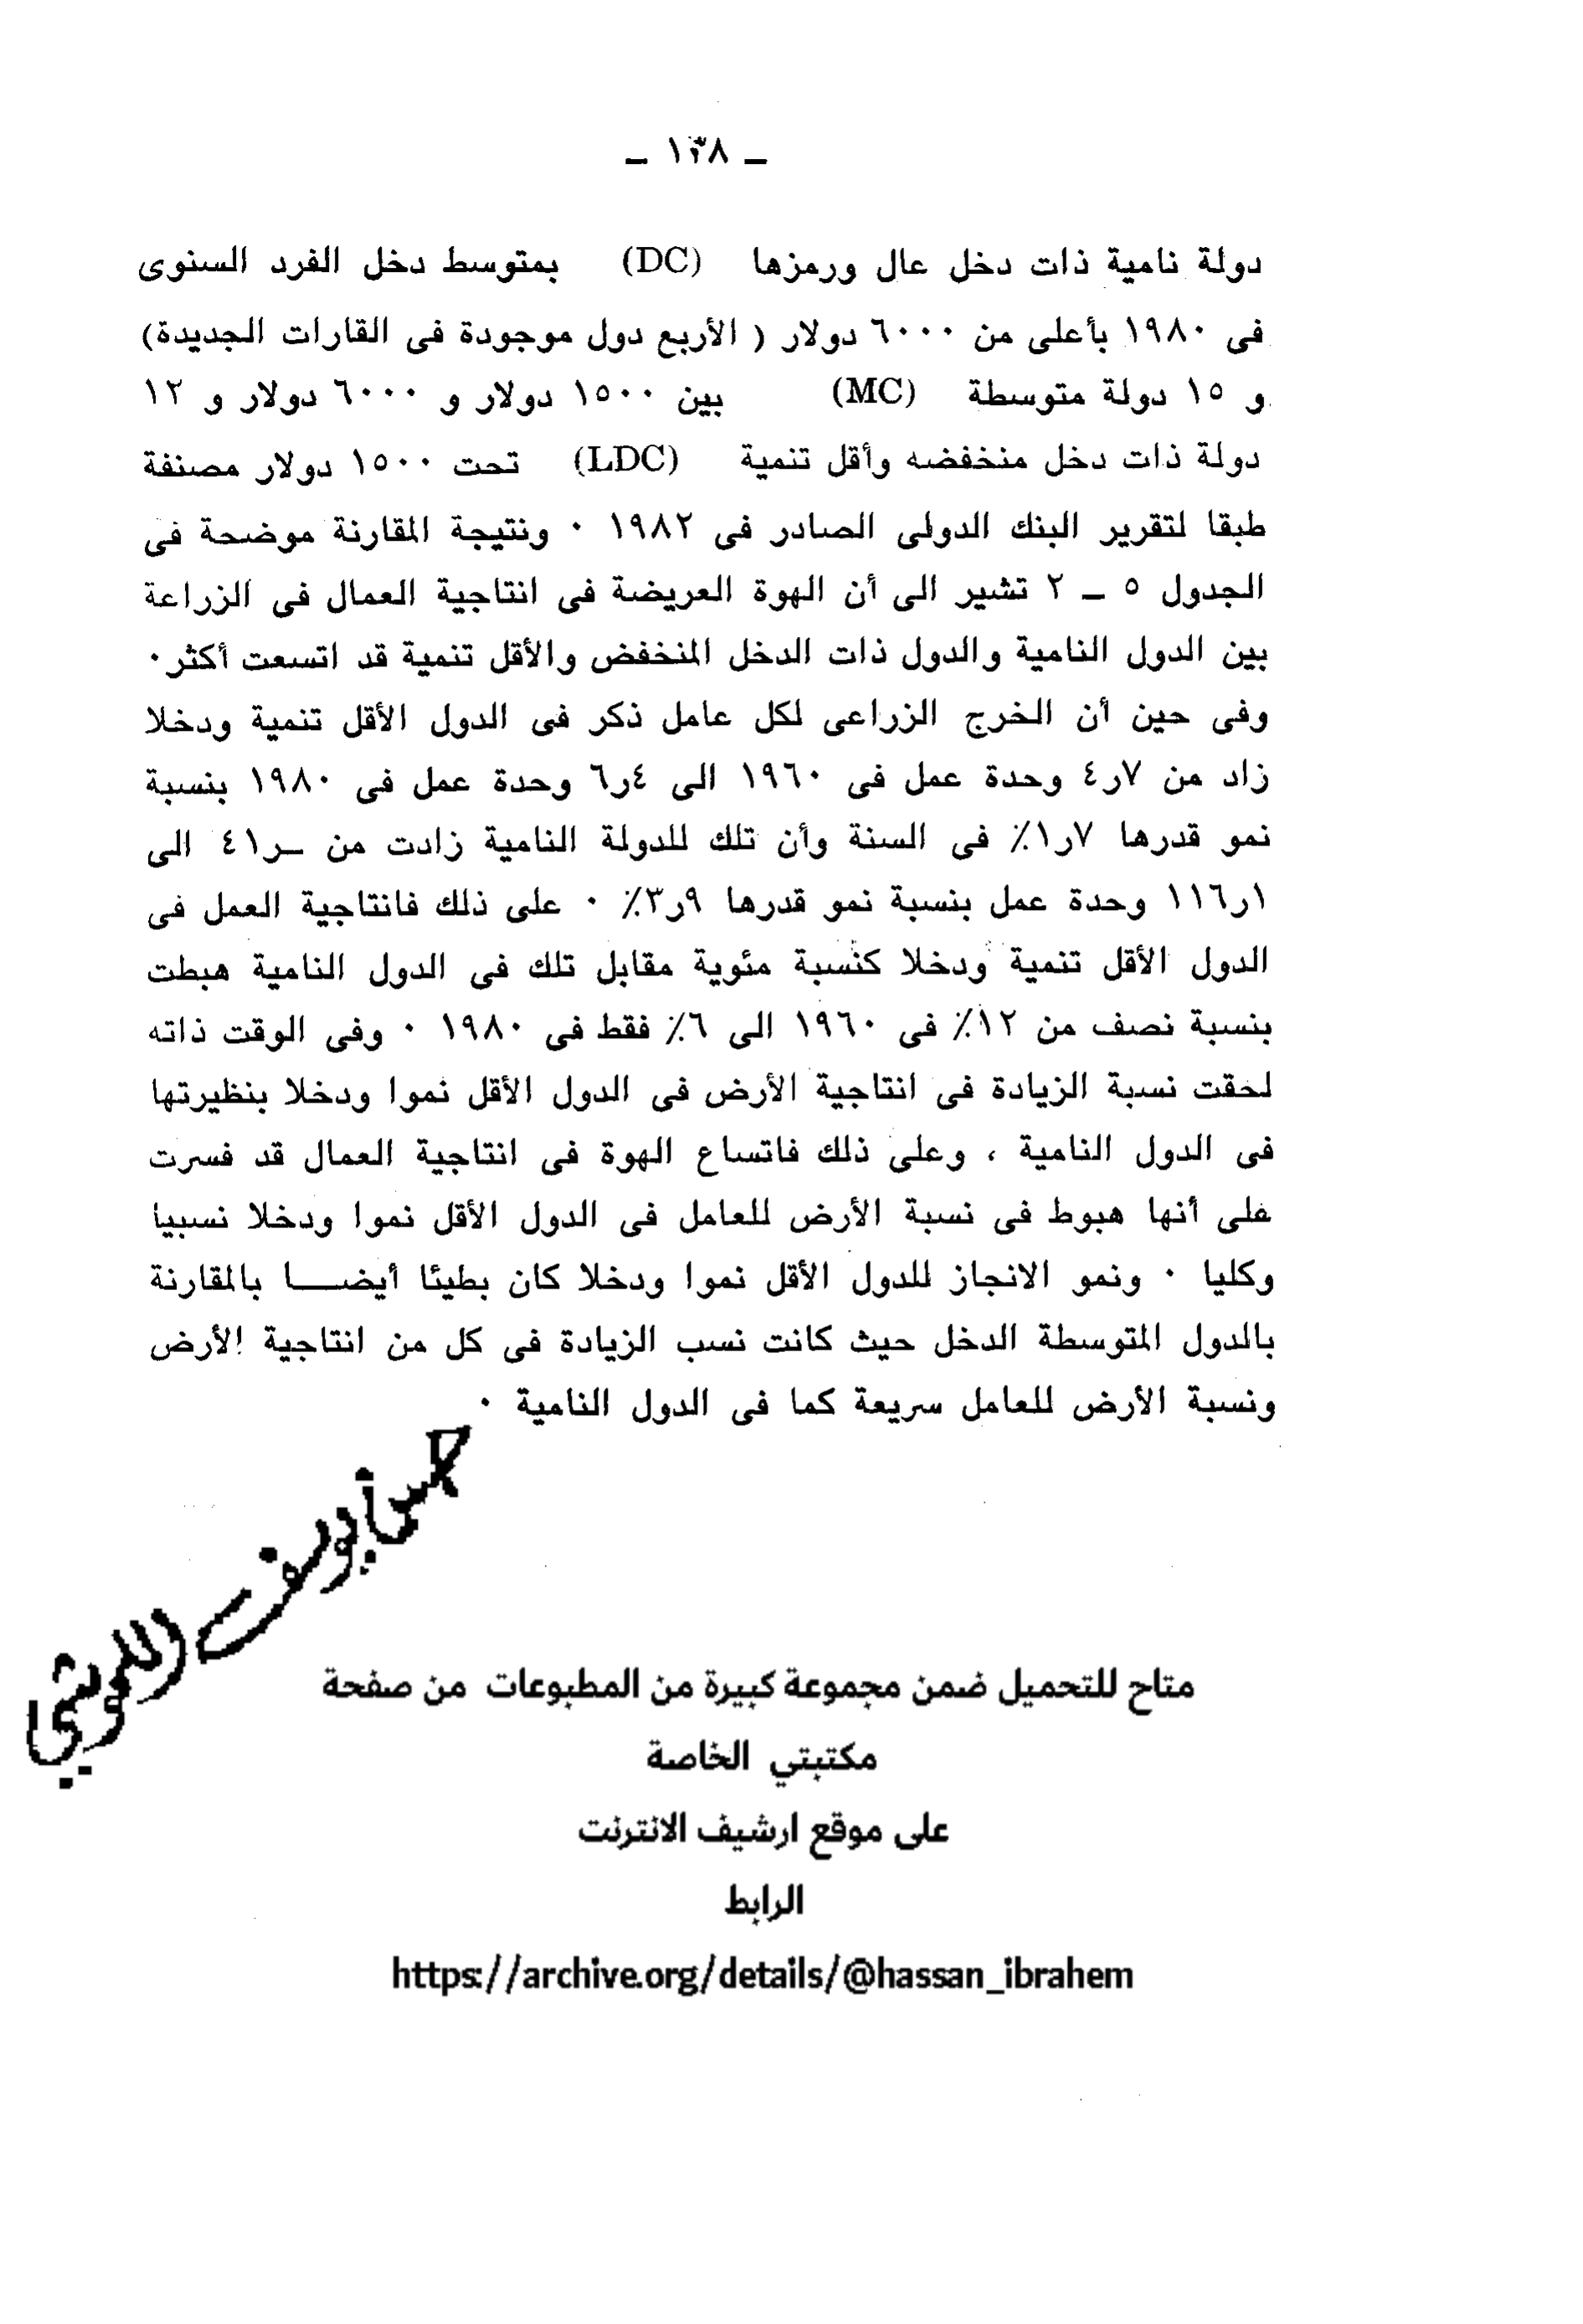 ـ ١٣٨ ـ
دولة نامية ذات دخل عال ورمزها (DC) بمتوسط دخل الفرد السنوى
فى ١٩٨٠ بأعلى من ٦٠٠٠ دولار ( الأربع دول موجودة فى القارات الجديدة)
و ١٥ دولة متوسطة (MC) بين ١٥٠٠ دولار و ٦٠٠٠ دولار و ١٢
دولة ذات دخل منخفضه وأقل تنمية (LDC) تحت ١٥٠٠ دولار مصنفة
طبقا لتقرير البنك الدولى الصادر فى ١٩٨٢ ٠ ونتيجة المقارنة موضحة فى
الجدول ٥ ـ ٢ تشير الى أن الهوة العريضة فى انتاجية العمال فى الزراعة
بين الدول النامية والدول ذات الدخل المنخفض والأقل تنمية قد اتسعت أكثر٠
وفى حين أن الخرج الزراعى لكل عامل ذكر فى الدول الأقل تنمية ودخلا
زاد من ٧ر٤ وحدة عمل فى ١٩٦٠ الى ٤ر٦ وحدة عمل فى ١٩٨٠ بنسبة
نمو قدرها ٧ر١٪ فى السنة وأن تلك للدولة النامية زادت من ـر٤١ الى
١ر١١٦ وحدة عمل بنسبة نمو قدرها ٩ر٣٪ ٠ على ذلك فانتاجية العمل فى
الدول الأقل تنمية ودخلا كنسبة مئوية مقابل تلك فى الدول النامية هبطت
بنسبة نصف من ١٢٪ فى ١٩٦٠ الى ٦٪ فقط فى ١٩٨٠ ٠ وفى الوقت ذاته
لحقت نسبة الزيادة فى انتاجية الأرض فى الدول الأقل نموا ودخلا بنظيرتها
فى الدول النامية ، وعلى ذلك فاتساع الهوة فى انتاجية العمال قد فسرت
على أنها هبوط فى نسبة الأرض للعامل فى الدول الأقل نموا ودخلا نسبيا
وكليا ٠ ونمو الانجاز للدول الأقل نموا ودخلا كان بطيئا أيضـــا بالمقارنة
بالدول المتوسطة الدخل حيث كانت نسب الزيادة فى كل من انتاجية الأرض
ونسبة الأرض للعامل سريعة كما فى الدول النامية ٠
متاح للتحميل ضمن مجموعة كبيرة من المطبوعات من صفحة
مكتبتي الخاصة
على موقع ارشيف الانترنت
الرابط
https://archive.org/details/@hassan_ibrahem